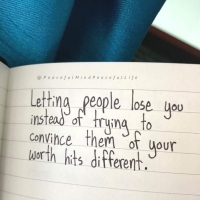 @PeacefulMindPeacefulLife
Letting people lose you
instead of trying to
convince them of your
worth hits different.